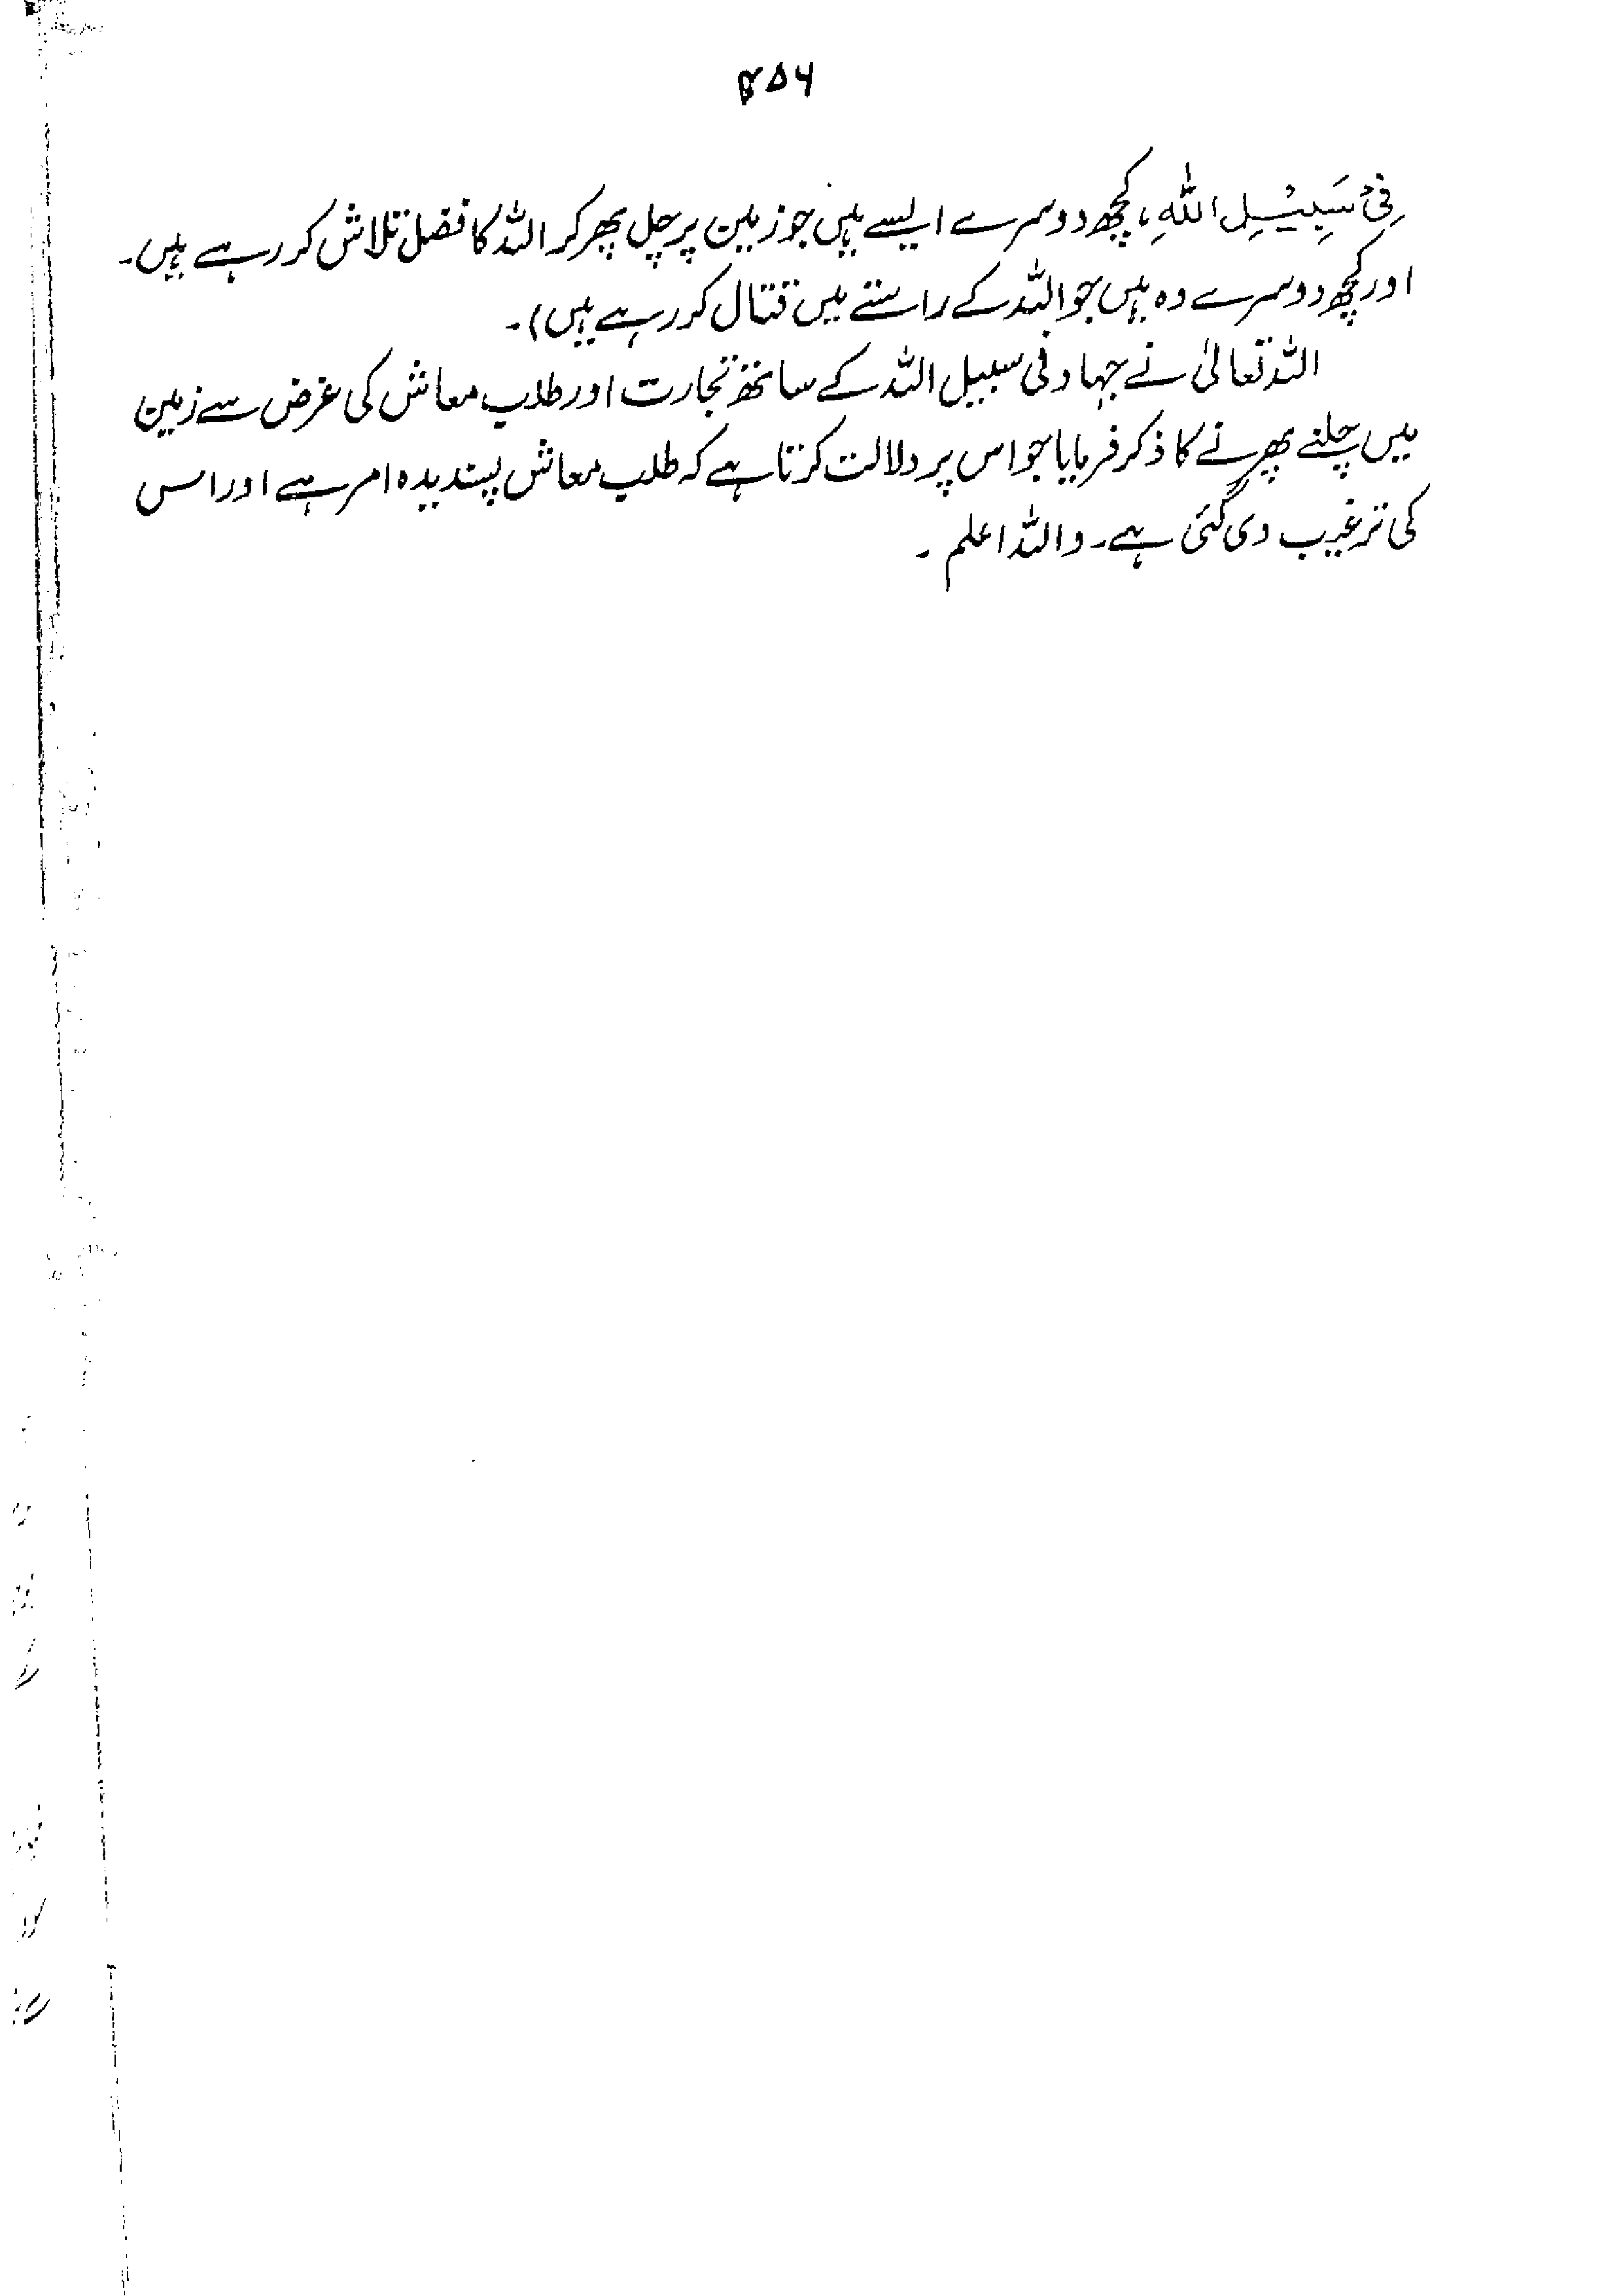 ۴۵۶
فِیْ سَبِیْلِ اللّٰهِ، کچھ دوسرے ایسے ہیں جو زمین پر چل پھر کر اللہ کا فضل تلاش کر رہے ہیں۔
اور کچھ دوسرے وہ ہیں جو اللہ کے راستے میں قتال کر رہے ہیں)۔
اللہ تعالیٰ نے جہاد فی سبیل اللہ کے ساتھ تجارت اور طلب معاش کی غرض سے زمین
میں چلنے پھرنے کا ذکر فرمایا جو اس پر دلالت کرتا ہے کہ طلب معاش پسندیدہ امر ہے اور اس
کی ترغیب دی گئی ہے۔ واللہ اعلم ۔